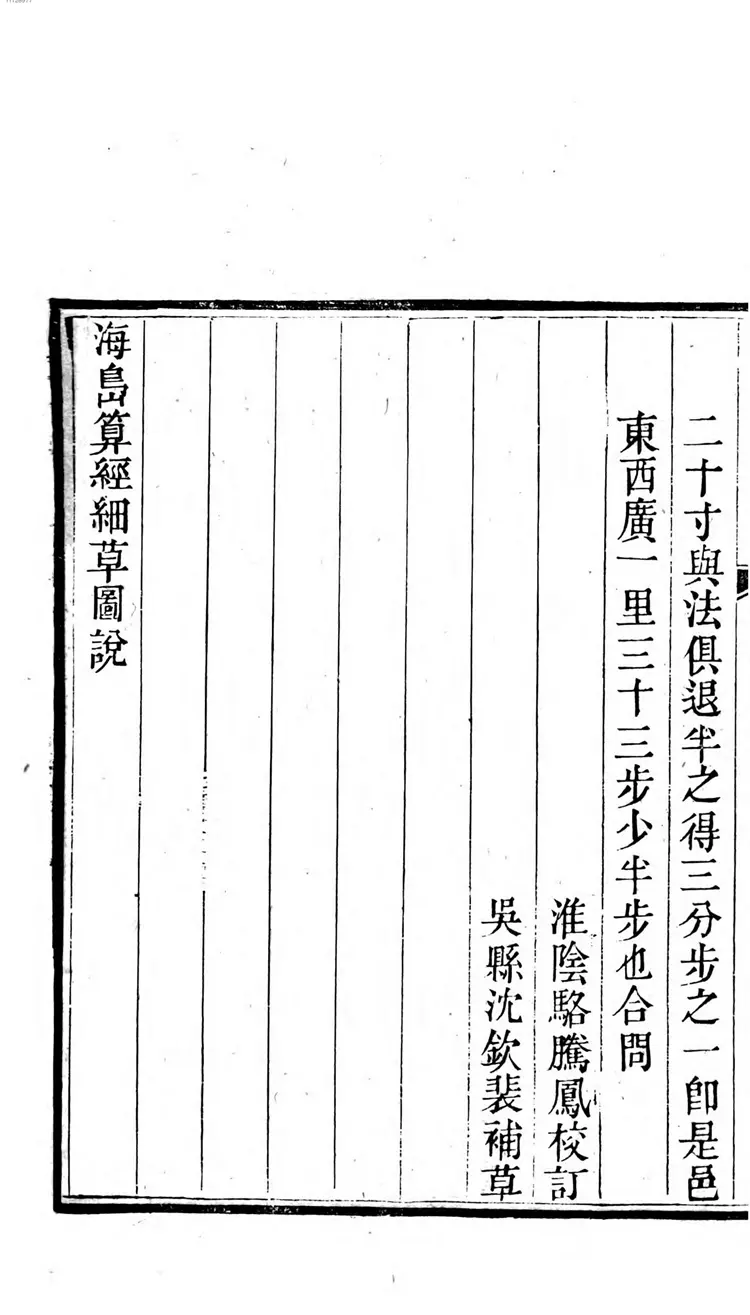 二十寸與法俱退半之得三分步之一卽是邑
東西廣一里三十三步少半步也合問
淮陰駱騰鳳校訂
吳縣沈欽裴補草
海島算經細草圖說